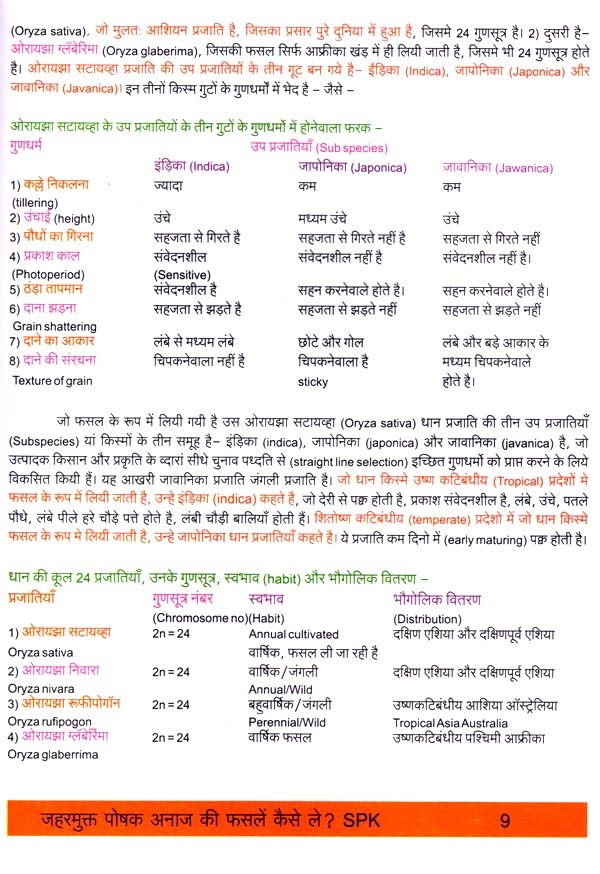 (Oryza sativa). जो मुलतः आशियन प्रजाति है, जिसका प्रसार पुरे दुनिया में हुआ है, जिसमे 24 गुणसूत्र है। 2) दुसरी है–
ओरायझा ग्लॅबेरिमा (Oryza glaberima), जिसकी फसल सिर्फ आफ्रीका खंड में ही लियी जाती है, जिसमे भी 24 गुणसूत्र होते
है। ओरायझा सटायव्हा प्रजाति की उप प्रजातियों के तीन गूट बन गये है– ईंड़िका (Indica), जापोनिका (Japonica) और
जावानिका (Javanica)। इन तीनों किस्म गुटों के गुणधर्मों में भेद है – जैसे –
ओरायझा सटायव्हा के उप प्रजातियों के तीन गुटों के गुणधर्मो में होनेवाला फरक –
गुणधर्म उप प्रजातियाँ (Sub species)
इंड़िका (Indica) जापोनिका (Japonica) जावानिका (Jawanica)
1) कल्ले निकलना ज्यादा कम कम
(tillering)
2) उंचाई (height) उंचे मध्यम उंचे उंचे
3) पौधों का गिरना सहजता से गिरते है सहजता से गिरते नहीं है सहजता से गिरते नहीं
4) प्रकाश काल संवेदनशील संवेदनशील नहीं है संवेदनशील नहीं है।
(Photoperiod) (Sensitive)
5) ठंड़ा तापमान संवेदनशील है सहन करनेवाले होते है। सहन करनेवाले होते है।
6) दाना झड़ना सहजता से झड़ते है सहजता से झड़ते नहीं सहजता से झड़ते नहीं
Grain shattering
7) दाने का आकार लंबे से मध्यम लंबे छोटे और गोल लंबे और बड़े आकार के
8) दाने की संरचना चिपकनेवाला नहीं है चिपकनेवाला है मध्यम चिपकनेवाले
Texture of grain sticky होते है।
जो फसल के रूप में लियी गयी है उस ओरायझा सटायव्हा (Oryza sativa) धान प्रजाति की तीन उप प्रजातियाँ
(Subspecies) यां किस्मों के तीन समूह है– इंड़िका (indica), जापोनिका (japonica) और जावानिका (javanica) है, जो
उत्पादक किसान और प्रकृति के व्दारां सीधे चुनाव पध्दति से (straight line selection) इच्छित गुणधर्मो को प्राप्त करने के लिये
विकसित कियी हैं। यह आखरी जावानिका प्रजाति जंगली प्रजाति है। जो धान किस्मे उष्ण कटिबंधीय (Tropical) प्रदेशो मे
फसल के रूप में लियी जाती है, उन्हे इंड़िका (indica) कहते है, जो देरी से पक्व होती है, प्रकाश संवेदनशील है, लंबे, उंचे, पतले
पौधे, लंबे पीले हरे चौड़े पत्ते होते है, लंबी चौड़ी बालियाँ होती हैं। शितोष्ण कटिबंधीय (temperate) प्रदेशो में जो धान किस्मे
फसल के रूप मे लियी जाती है, उन्हे जापोनिका धान प्रजातियाँ कहते है। ये प्रजाति कम दिनो में (early maturing) पक्व होती है।
धान की कूल 24 प्रजातियाँ, उनके गुणसूत्र, स्वभाव (habit) और भौगोलिक वितरण –
प्रजातियाँ गुणसूत्र नंबर स्वभाव भौगोलिक वितरण
(Chromosome no)(Habit) (Distribution)
1) ओरायझा सटायव्हा 2n = 24 Annual cultivated दक्षिण एशिया और दक्षिणपूर्व एशिया
Oryza sativa वार्षिक, फसल ली जा रही है
2) ओरायझा निवारा 2n = 24 वार्षिक/जंगली दक्षिण एशिया और दक्षिणपूर्व एशिया
Oryza nivara Annual/Wild
3) ओरायझा रूफीपोगॉन 2n = 24 बहुवार्षिक/जंगली उष्णकटिबंधीय आशिया ऑस्ट्रेलिया
Oryza rufipogon Perennial/Wild Tropical Asia Australia
4) ओरायझा ग्लॅबेर्रिमा 2n = 24 वार्षिक फसल उष्णकटिबंधीय पश्चिमी आफ्रीका
Oryza glaberrima
जहरमुक्त पोषक अनाज की फसलें कैसे ले? SPK 9